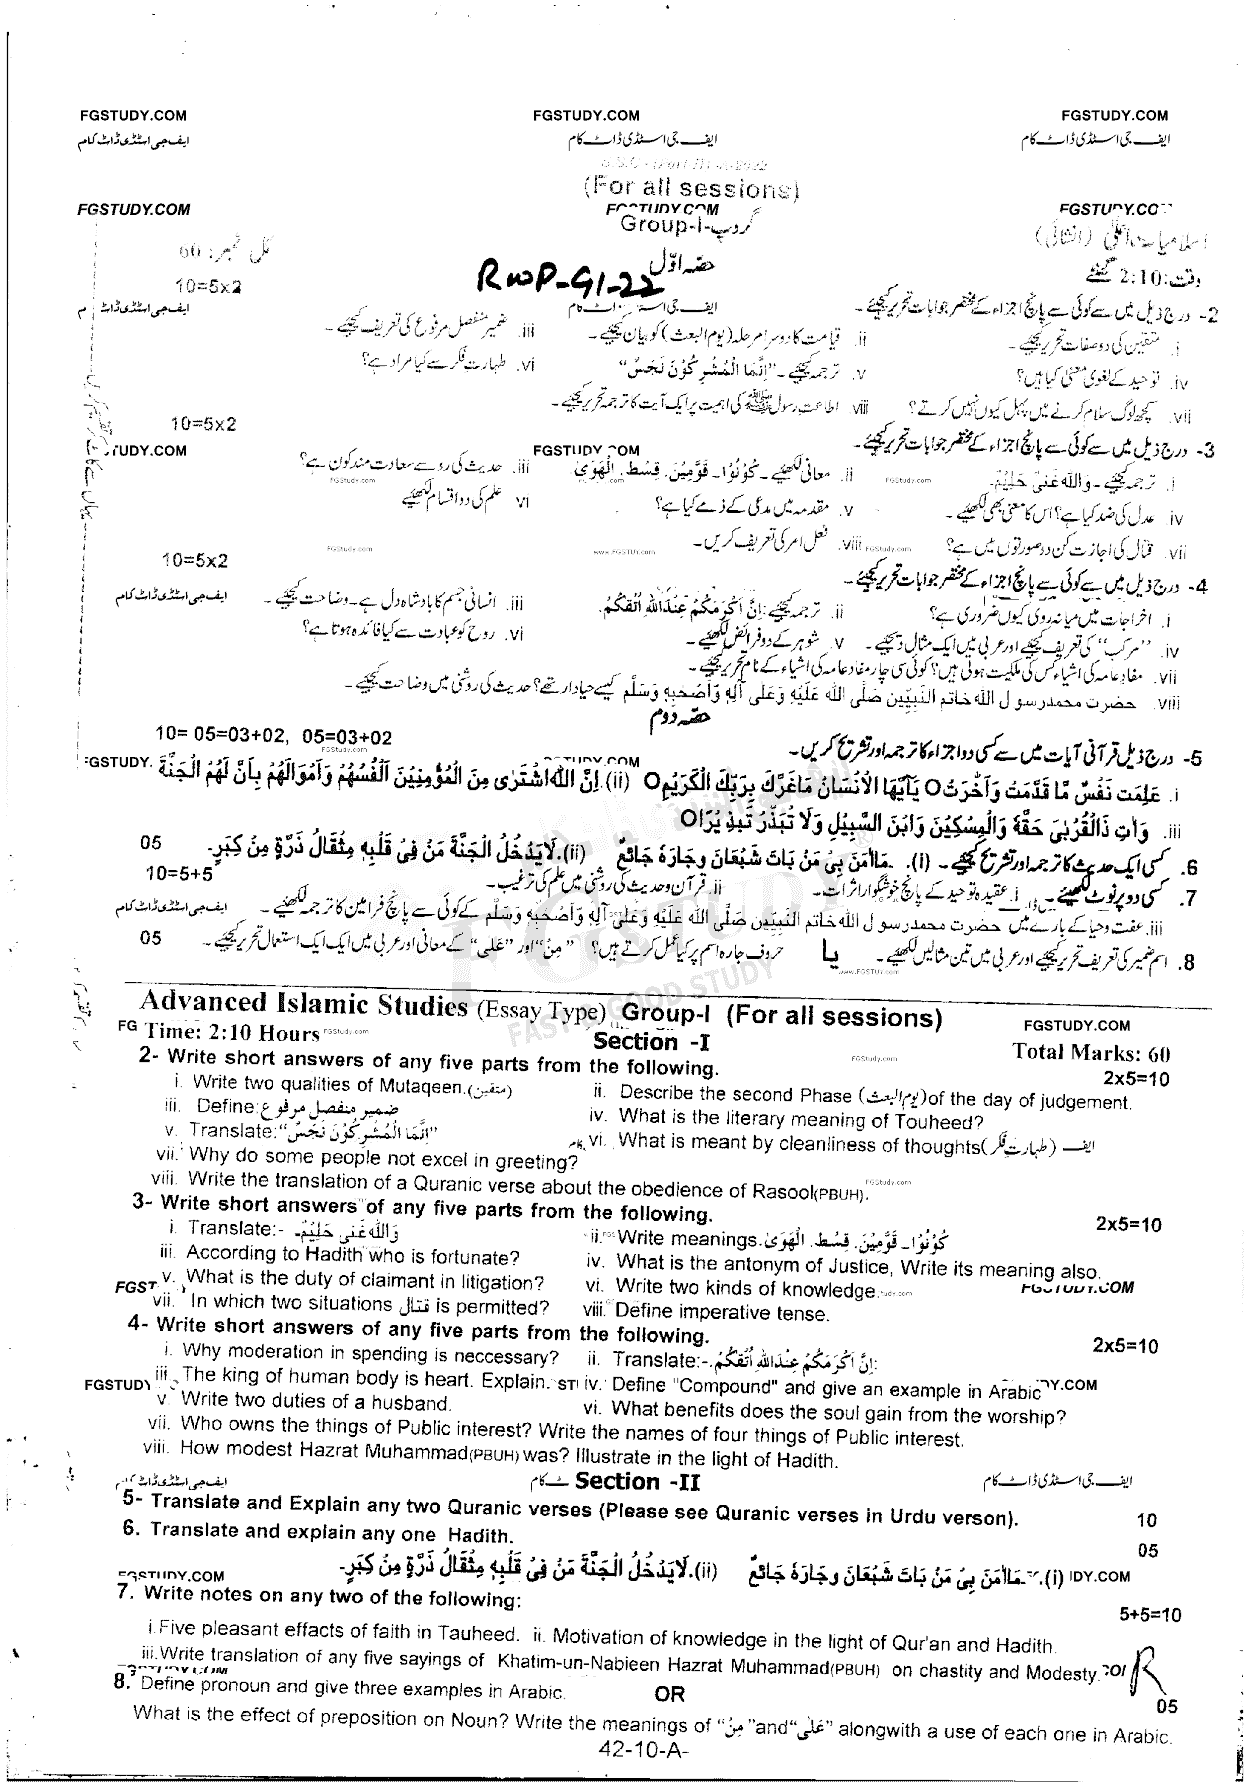 FGSTUDY.COM FGSTUDY.COM FGSTUDY.COM
ایف جی اسٹڈی ڈاٹ کام ایف جی اسٹڈی ڈاٹ کام ایف جی اسٹڈی ڈاٹ کام
(For all sessions)
FGSTUDY.COM
Group-I-گروپ
اسلامیات اعلیٰ (انشائی) کل نمبر: 60
وقت: 2:10 گھنٹے حصہ اوّل RWP-G1-22
2- درج ذیل میں سے کوئی سے پانچ اجزاء کے مختصر جوابات تحریر کیجئے۔ 10=5x2
i. متقین کی دو صفات تحریر کیجئے۔ ii. قیامت کا دوسرا مرحلہ (یوم البعث) کو بیان کیجئے۔ iii. ضمیر منفصل مرفوع کی تعریف کیجئے۔
iv. توحید کے لغوی معنیٰ کیا ہیں؟ v. ترجمہ کیجئے۔ "اِنَّمَا الْمُشْرِکُوْنَ نَجَسٌ" vi. طہارت فکر سے کیا مراد ہے؟
vii. کچھ لوگ سلام کرنے میں پہل کیوں نہیں کرتے؟ viii. اطاعت رسولﷺ کی اہمیت پر ایک آیت کا ترجمہ تحریر کیجئے۔
3- درج ذیل میں سے کوئی سے پانچ اجزاء کے مختصر جوابات تحریر کیجئے۔ 10=5x2
i. ترجمہ کیجئے۔ وَاللہُ غَنِیٌّ حَلِیْمٌ۔ ii. معانی لکھئے۔ کُوْنُوْا۔ قَوّٰمِیْنَ، قِسْط، الْهَوٰى iii. حدیث کی رو سے سعادت مند کون ہے؟
iv. عدل کی ضد کیا ہے؟ اس کا معنی بھی لکھئے۔ v. مقدمہ میں مدعی کے ذمے کیا ہے؟ vi. علم کی دو اقسام لکھئے
vii. قتال کی اجازت کن دو صورتوں میں ہے؟ viii. فعل امر کی تعریف کریں۔
4- درج ذیل میں سے کوئی سے پانچ اجزاء کے مختصر جوابات تحریر کیجئے۔ 10=5x2
i. اخراجات میں میانہ روی کیوں ضروری ہے؟ ii. ترجمہ کیجئے: اِنَّ اَکْرَمَکُمْ عِنْدَاللہِ اَتْقٰکُمْ۔ iii. انسانی جسم کا بادشاہ دل ہے۔ وضاحت کیجئے۔
iv. "مرکب" کی تعریف کیجئے اور عربی میں ایک مثال دیجئے۔ v. شوہر کے دو فرائض لکھئے۔ vi. روح کو عبادت سے کیا فائدہ ہوتا ہے؟
vii. مفاد عامہ کی اشیاء کس کی ملکیت ہوتی ہیں؟ کوئی سی چار مفاد عامہ کی اشیاء کے نام تحریر کیجئے۔
viii. حضرت محمد رسول اللہ خاتم النبیّین صَلَّی اللہُ عَلَیْہِ وَعَلٰی آلِہٖ وَاَصْحٰبِہٖ وَسَلَّم کیسے حیادار تھے؟ حدیث کی روشنی میں وضاحت کیجئے۔
حصہ دوم
5- درج ذیل قرآنی آیات میں سے کسی دو اجزاء کا ترجمہ اور تشریح کریں۔ 10= 05=03+02, 05=03+02
i. عَلِمَتْ نَفْسٌ مَّا قَدَّمَتْ وَاَخَّرَتْ○ یٰٓاَیُّهَا الْاِنْسَانُ مَاغَرَّكَ بِرَبِّكَ الْکَرِیْمِ○ (ii). اِنَّ اللہَ اشْتَرٰی مِنَ الْمُؤْمِنِیْنَ اَنْفُسَهُمْ وَاَمْوَالَهُمْ بِاَنَّ لَهُمُ الْجَنَّةَ
iii. وَاٰتِ ذَاالْقُرْبٰی حَقَّهٗ وَالْمِسْکِیْنَ وَابْنَ السَّبِیْلِ وَلَا تُبَذِّرْ تَبْذِیْرًا○
6. کسی ایک حدیث کا ترجمہ اور تشریح کیجئے۔ (i). مَااٰمَنَ بِیْ مَنْ بَاتَ شَبْعَانَ وَجَارُهٗ جَائِعٌ (ii). لَایَدْخُلُ الْجَنَّةَ مَنْ فِیْ قَلْبِهٖ مِثْقَالُ ذَرَّةٍ مِنْ کِبَرٍ۔ 05
7. کسی دو پر نوٹ لکھئے۔ i. عقیدہ توحید کے پانچ خوشگوار اثرات۔ ii. قرآن و حدیث کی روشنی میں علم کی ترغیب۔ 10=5+5
iii. عفت و حیا کے بارے میں حضرت محمد رسول اللہ خاتم النبیّین صَلَّی اللہُ عَلَیْہِ وَعَلٰی آلِہٖ وَاَصْحٰبِہٖ وَسَلَّم کے کوئی سے پانچ فرامین کا ترجمہ لکھئے۔
8. اسم ضمیر کی تعریف تحریر کیجئے اور عربی میں تین مثالیں لکھئے۔ یا حروف جارہ اسم پر کیا عمل کرتے ہیں؟ "مِنْ" اور "عَلٰی" کے معانی اور عربی میں ایک ایک استعمال تحریر کیجئے۔ 05
Advanced Islamic Studies (Essay Type) Group-I (For all sessions)
FG Time: 2:10 Hours FGStudy.com FGSTUDY.COM
Section -I Total Marks: 60
2- Write short answers of any five parts from the following. 2x5=10
i. Write two qualities of Mutaqeen.(متقین) ii. Describe the second Phase (یوم البعث)of the day of judgement.
iii. Define: ضمیر منفصل مرفوع iv. What is the literary meaning of Touheed?
v. Translate:"اِنَّمَا الْمُشْرِکُوْنَ نَجَسٌ" vi. What is meant by cleanliness of thoughts(طہارت فکر)
vii. Why do some people not excel in greeting?
viii. Write the translation of a Quranic verse about the obedience of Rasool(PBUH).
3- Write short answers of any five parts from the following. 2x5=10
i. Translate:- وَاللہُ غَنِیٌّ حَلِیْمٌ۔ ii. Write meanings. کُوْنُوْا۔ قَوّٰمِیْنَ، قِسْط، الْهَوٰى
iii. According to Hadith who is fortunate? iv. What is the antonym of Justice, Write its meaning also.
v. What is the duty of claimant in litigation? vi. Write two kinds of knowledge.
vii. In which two situations قتال is permitted? viii. Define imperative tense.
4- Write short answers of any five parts from the following. 2x5=10
i. Why moderation in spending is neccessary? ii. Translate:-. اِنَّ اَکْرَمَکُمْ عِنْدَاللہِ اَتْقٰکُمْ:
iii. The king of human body is heart. Explain. iv. Define "Compound" and give an example in Arabic
v. Write two duties of a husband. vi. What benefits does the soul gain from the worship?
vii. Who owns the things of Public interest? Write the names of four things of Public interest.
viii. How modest Hazrat Muhammad(PBUH) was? Illustrate in the light of Hadith.
Section -II
5- Translate and Explain any two Quranic verses (Please see Quranic verses in Urdu verson). 10
6. Translate and explain any one Hadith. 05
(i). مَااٰمَنَ بِیْ مَنْ بَاتَ شَبْعَانَ وَجَارُهٗ جَائِعٌ (ii). لَایَدْخُلُ الْجَنَّةَ مَنْ فِیْ قَلْبِهٖ مِثْقَالُ ذَرَّةٍ مِنْ کِبَرٍ۔
7. Write notes on any two of the following: 5+5=10
i. Five pleasant effacts of faith in Tauheed. ii. Motivation of knowledge in the light of Qur'an and Hadith.
iii. Write translation of any five sayings of Khatim-un-Nabieen Hazrat Muhammad(PBUH) on chastity and Modesty.
8. Define pronoun and give three examples in Arabic. OR 05
What is the effect of preposition on Noun? Write the meanings of "مِنْ "and"عَلٰی" alongwith a use of each one in Arabic.
42-10-A-